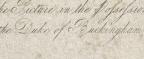 he Picture in the Possession
the Duke of Buckingham